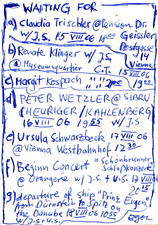 WAITING FOR
a) Claudia Trischler @ Pension Dr.
w/ J.S. 15 VIII 06 Geissler
b) Renate Klinger w/ J.S. Postgasse
@ Museumsquartier C.T. 14 Vienna
15 VIII 06
c) Margit Kospach
d) PETER WETZLER @ SIRBU
(HEURIGER / KAHLENBERG)
16 VIII 06 w/ J.S.
e) Ursula Schwarzbeck 17 VIII 06
@ Vienna Westbahnhof 12
f) Beginn Concert "Schönbrunner
Schlosskonzerte"
@ Orangerie w/ J.S. + U.S. 17 VIII 06
20 15
g) departure of ship "Prinz Eugen"
from Direction to Spitz on
the Danube 18 VIII 06 10
w/ J.S. + U.S.